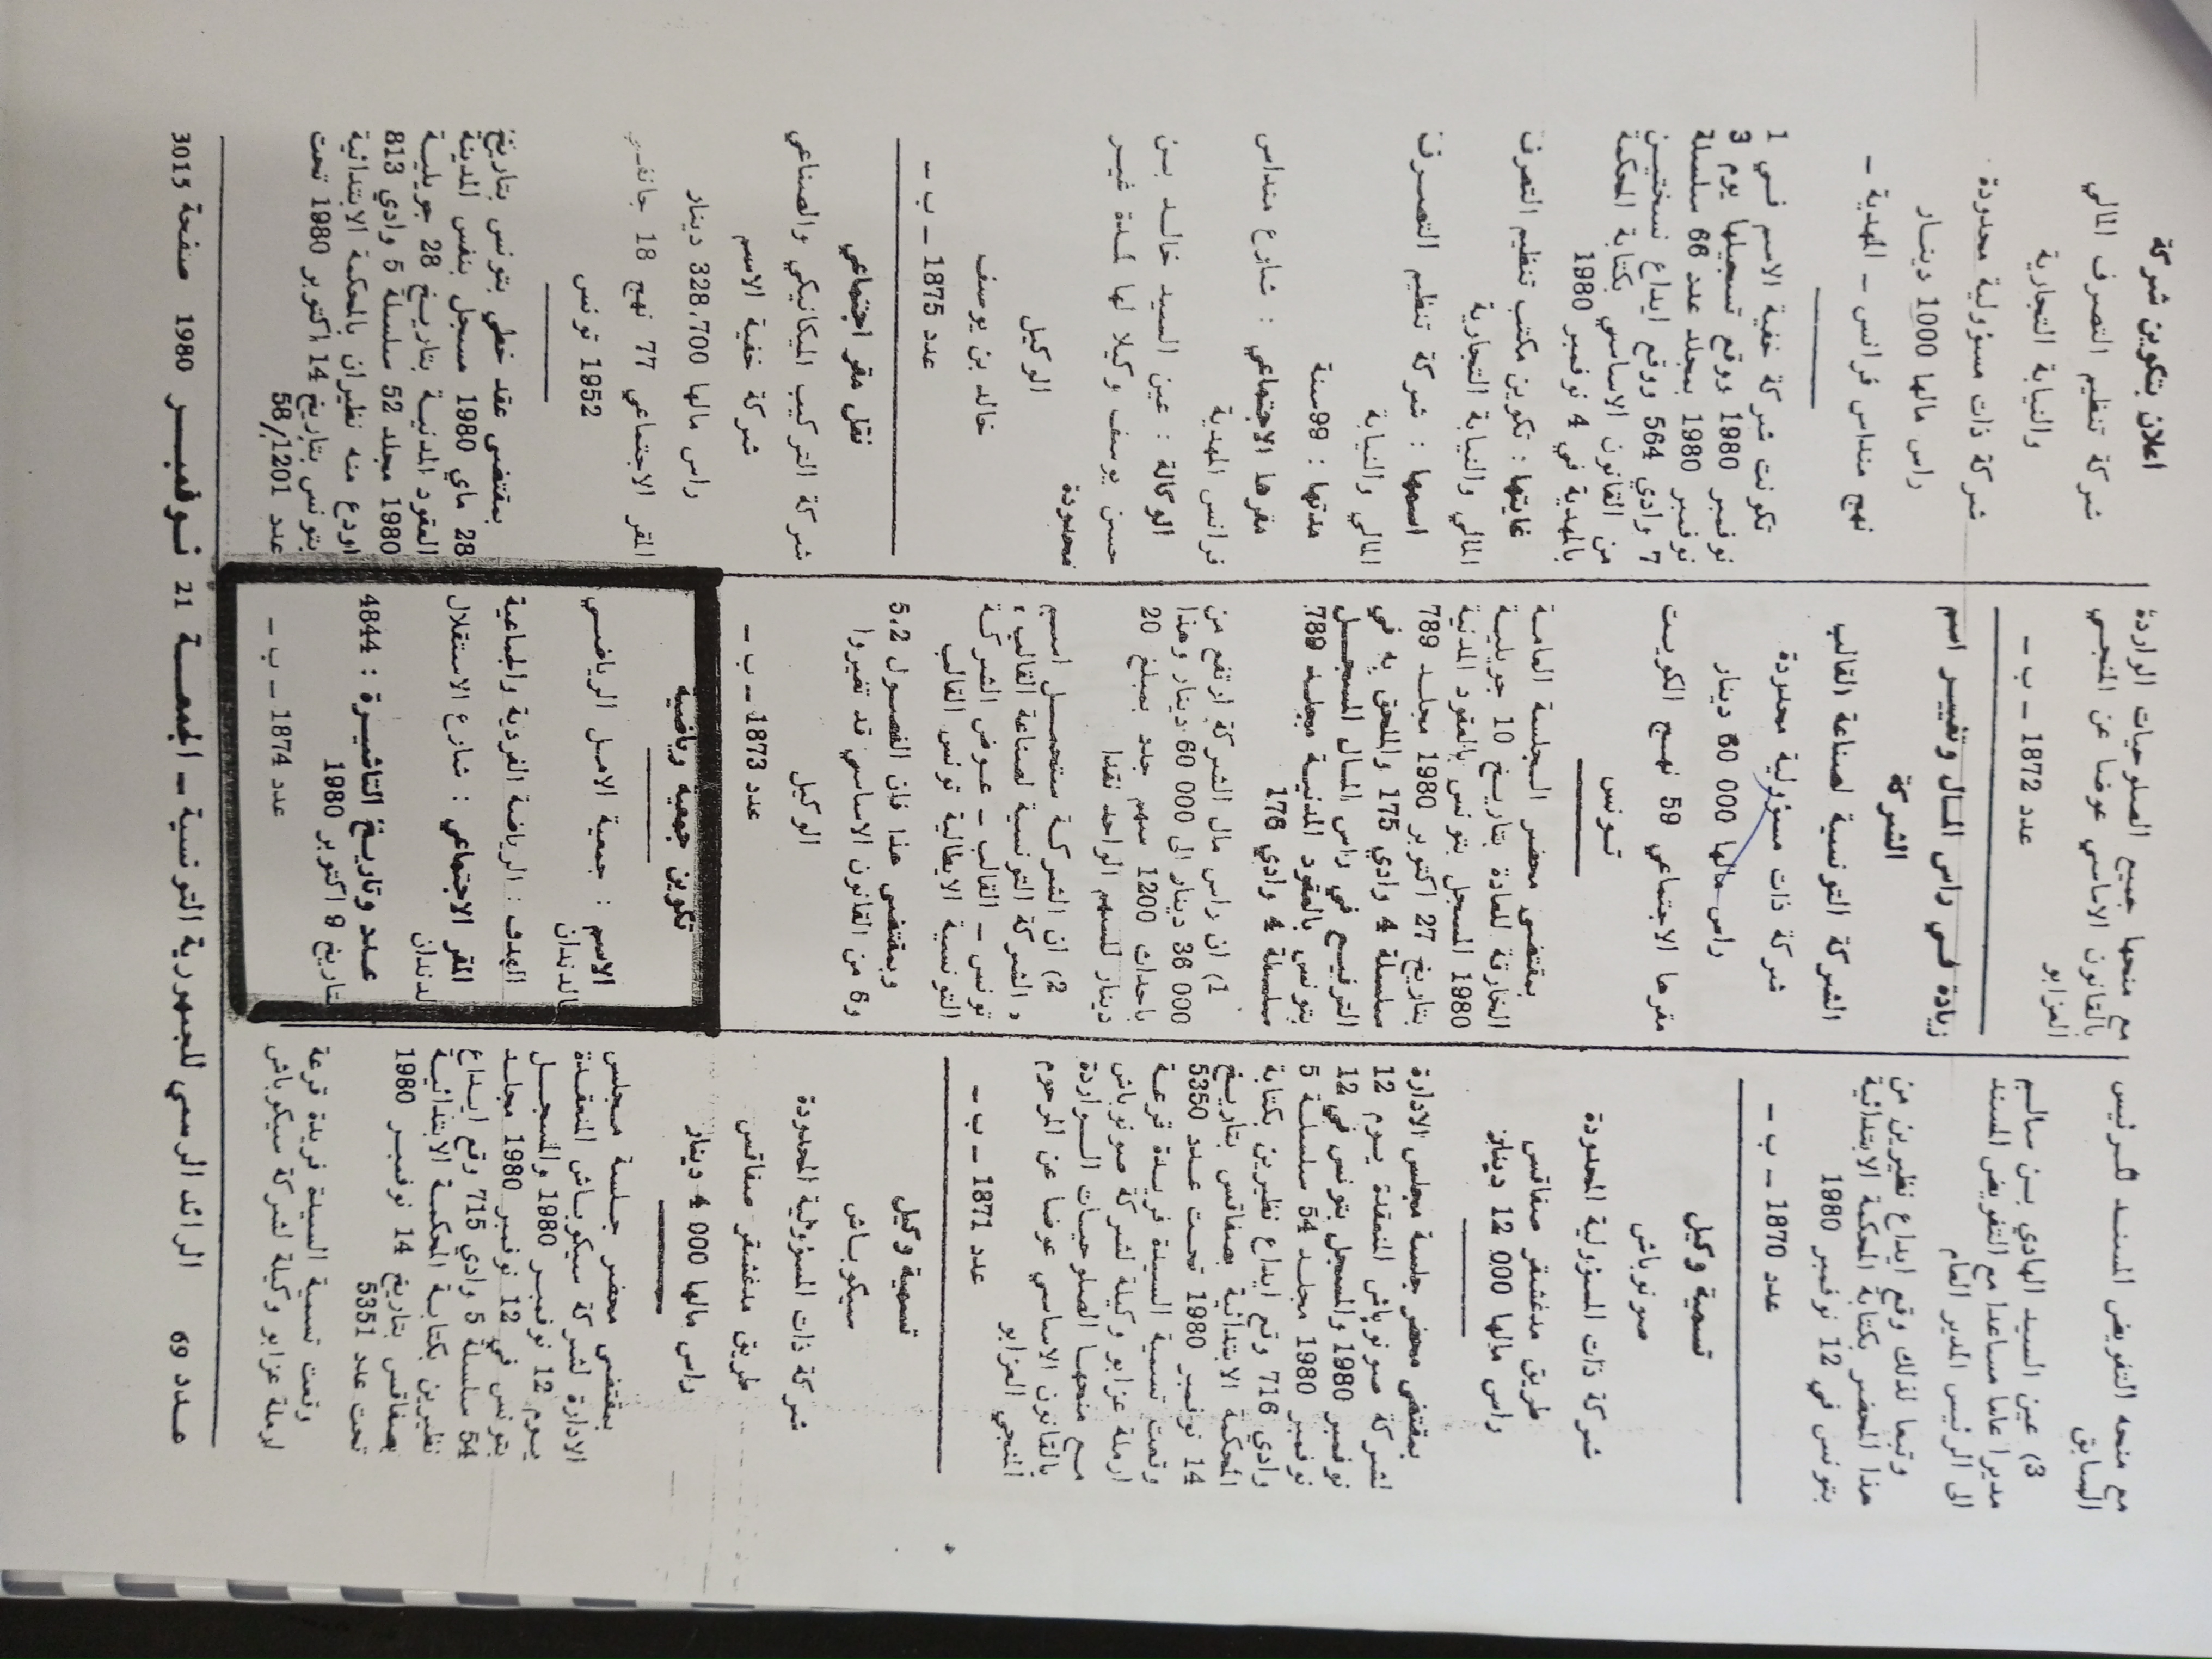 مع منحه التفويض المسند للرئيس
السابق
3) عين السيد الهادي بن سالم
مديرا عاما مساعدا مع التفويض المسند
الى الرئيس المدير العام
وتبعا لذلك وقع ايداع نظيرين من
هذا المحضر بكتابة المحكمة الابتدائية
بتونس في 12 نوفمبر 1980
عدد 1870 ــ ب ــ
تسمية وكيل
صونوباش
شركة ذات المسؤولية المحدودة
طريق مدغشقر صفاقس
راس مالها 000 12 دينار
بمقتضى محضر جلسة مجلس الادارة
لشركة صونوباش المنعقدة يوم 12
نوفمبر 1980 والمسجل بتونس في 12
نوفمبر 1980 مجلد 54 سلسلة 5
وادي 716 وقع ايداع نظيرين بكتابة
المحكمة الابتدائية بصفاقس بتاريخ
14 نوفمبر 1980 تحت عدد 5350
وقعت تسمية السيدة فريدة قرعة
ارملة عزابو وكيلة لشركة صونوباش
مع منحها الصلوحيات الواردة
بالقانون الاساسي عوضا عن المرحوم
المنجي العزابو
عدد 1871 ــ ب ــ
تسمية وكيل
سيكوباش
شركة ذات المسؤولية المحدودة
طريق مدغشقر صفاقس
راس مالها 000 4 دينار
بمقتضى محضر جلسة مجلس
الادارة لشركة سيكوباش المنعقدة
يوم 12 نوفمبر 1980 والمسجل
بتونس في 12 نوفمبر 1980 مجلد
54 سلسلة 5 وادي 715 وقع ايداع
نظيرين بكتابة المحكمة الابتدائية
بصفاقس بتاريخ 14 نوفمبر 1980
تحت عدد 5351
وقعت تسمية السيدة فريدة قرعة
ارملة عزابو وكيلة لشركة سيكوباش
مع منحها جميع الصلوحيات الواردة
بالقانون الاساسي عوضا عن المنجي
العزابو
عدد 1872 ــ ب ــ
زيادة في راس المال وتغيير اسم
الشركة
الشركة التونسية لصناعة القالب
شركة ذات مسؤولية محدودة
راس مالها 000 60 دينار
مقرها الاجتماعي 59 نهج الكويت
تونس
بمقتضى محضر الجلسة العامة
الخارقة للعادة بتاريخ 10 جويلية
1980 المسجل بتونس بالعقود المدنية
بتاريخ 27 اكتوبر 1980 مجلد 789
سلسلة 4 وادي 175 والملحق به في
الترفيع في راس المال المسجل
بتونس بالعقود المدنية مجلد 789
سلسلة 4 وادي 176
1) ان راس مال الشركة ارتفع من
000 36 دينار الى 000 60 دينار وهذا
باحداث 1200 سهم جدد بمبلغ 20
دينار للسهم الواحد نقدا
2) ان الشركة ستحمل اسم
« الشركة التونسية لصناعة القالب ،
تونس ــ القالب ــ عوض الشركة
التونسية الايطالية تونس القالب
وبمقتضى هذا فان الفصول 5،2
و6 من القانون الاساسي قد تغيروا
الوكيل
عدد 1873 ــ ب ــ
تكوين جمعية رياضية
الاسم : جمعية الامل الرياضي
بالدندان
الهدف : الرياضة الفردية والجماعية
المقر الاجتماعي : شارع الاستقلال
لدندان
عدد وتاريخ التاشيرة : 4844
بتاريخ 9 اكتوبر 1980
عدد 1874 ــ ب ــ
اعلان بتكوين شركة
شركة تنظيم التصرف المالي
والنيابة التجارية
شركة ذات مسؤولية محدودة
راس مالها 1000 دينار
نهج منداس فرانس ــ المهدية ــ
تكونت شركة خفية الاسم في 1
نوفمبر 1980 ووقع تسجيلها يوم 3
نوفمبر 1980 بمجلد عدد 66 سلسلة
7 وادي 564 ووقع ايداع نسختين
من القانون الاساسي بكتابة المحكمة
بالمهدية في 4 نوفمبر 1980
غايتها : تكوين مكتب تنظيم التصرف
المالي والنيابة التجارية
اسمها : شركة تنظيم التصرف
المالي والنيابة
مدتها : 99 سنة
مقرها الاجتماعي : شارع منداس
فرانس المهدية
الوكالة : عين السيد خالد بن
حسن يوسف وكيلا لها لمدة غير
محدودة
الوكيل
خالد بن يوسف
عدد 1875 ــ ب ــ
نقل مقر اجتماعي
شركة التركيب الميكانيكي والصناعي
شركة خفية الاسم
راس مالها 328.700 دينار
المقر الاجتماعي 77 نهج 18 جانفي
1952 تونس
بمقتضى عقد خطي بتونس بتاريخ
28 ماي 1980 مسجل بنفس المدينة
العقود المدنية بتاريخ 28 جويلية
1980 مجلد 52 سلسلة 5 وادي 813
اودع منه نظيران بالمحكمة الابتدائية
بتونس بتاريخ 14 اكتوبر 1980 تحت
عدد 58/1201
عدد 69 الرائد الرسمي للجمهورية التونسية ــ الجمعة 21 نوفمبر 1980 صفحة 3015